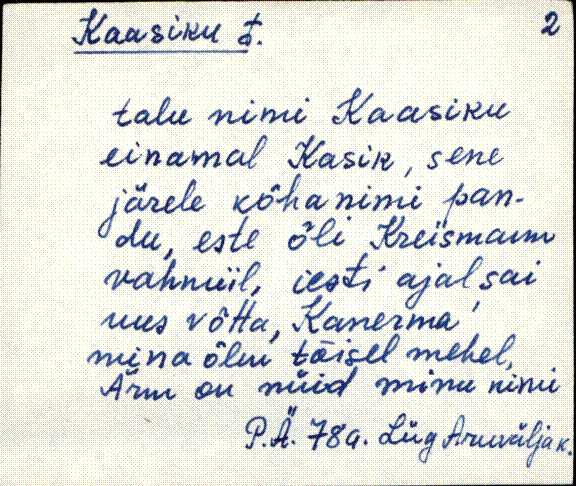 Kaasiku t.
2
talu nimi Kaasiku
einamal Kasik, sene
järele kõha nimi pan-
du, este õli Kreismann
vahnuil, iesti ajal sai
uus võtta, Kanerma
mina õlen tõisel mehel,
Ärm on nüid minu nimi
P.Ä. 78a. Lüg Aruvälja k.